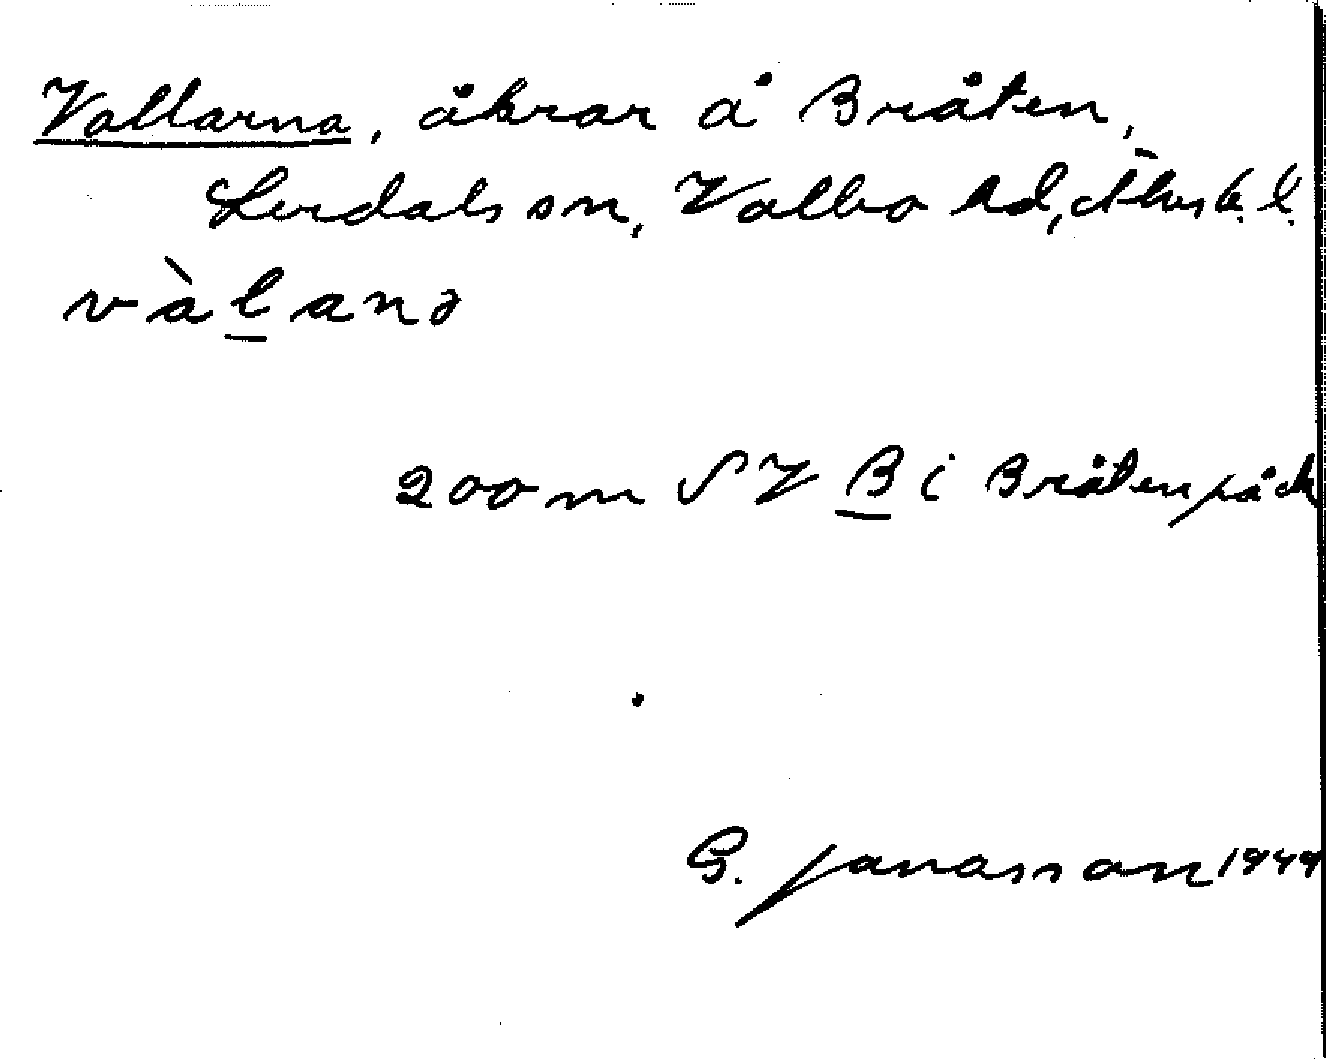 Vallarna, åkrar å Bråten,
Lerdals sn, Valbo hd, Älvsb. l.
vàlanə
200 m SV B i Bråten på ek
G. Jonasson 1949